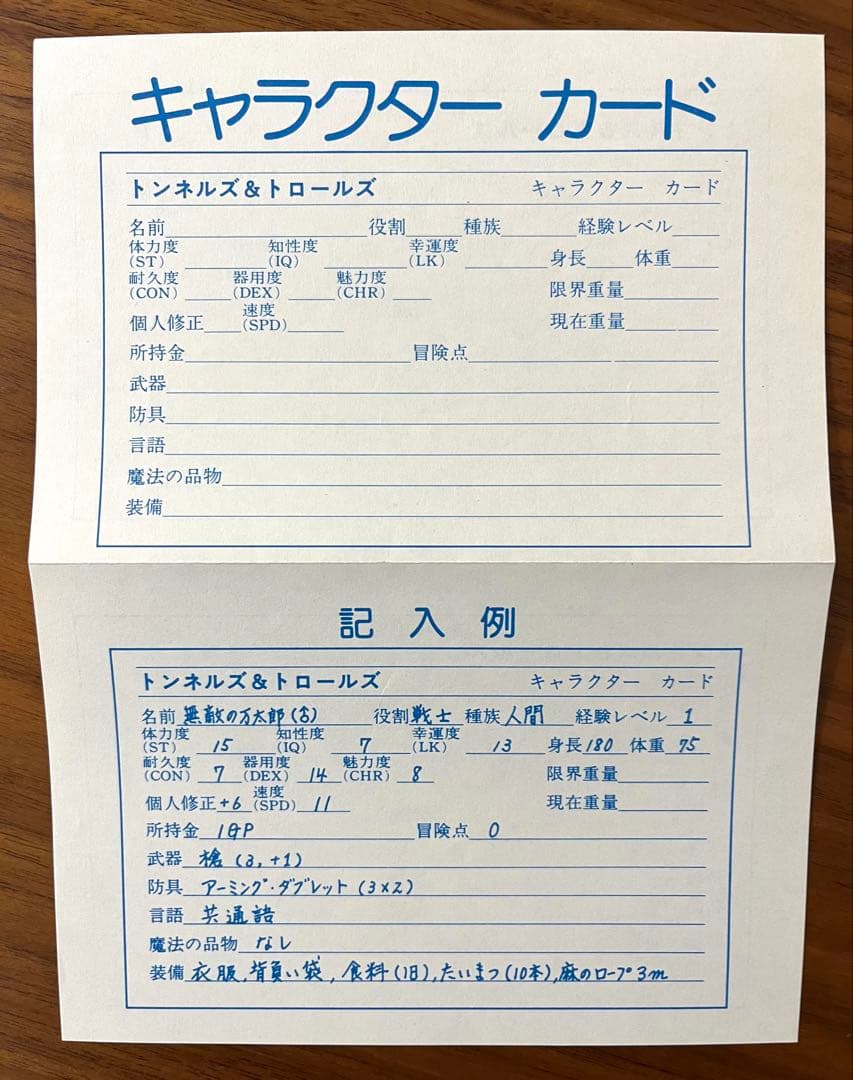 キャラクター カード
トンネルズ&トロールズ キャラクター カード
名前 役割 種族 経験レベル
体力度(ST) 知性度(IQ) 幸運度(LK) 身長 体重
耐久度(CON) 器用度(DEX) 魅力度(CHR) 限界重量
個人修正 速度(SPD) 現在重量
所持金 冒険点
武器
防具
言語
魔法の品物
装備
記入例
トンネルズ&トロールズ キャラクター カード
名前 無敵の万太郎(♂) 役割 戦士 種族 人間 経験レベル 1
体力度(ST) 15 知性度(IQ) 7 幸運度(LK) 13 身長 180 体重 75
耐久度(CON) 7 器用度(DEX) 14 魅力度(CHR) 8 限界重量
個人修正 +6 速度(SPD) 11 現在重量
所持金 1GP 冒険点 0
武器 槍(3,+1)
防具 アーミング・ダブレット(3×2)
言語 共通語
魔法の品物 なし
装備 衣服,背負い袋,食料(1日),たいまつ(10本),麻のロープ3m